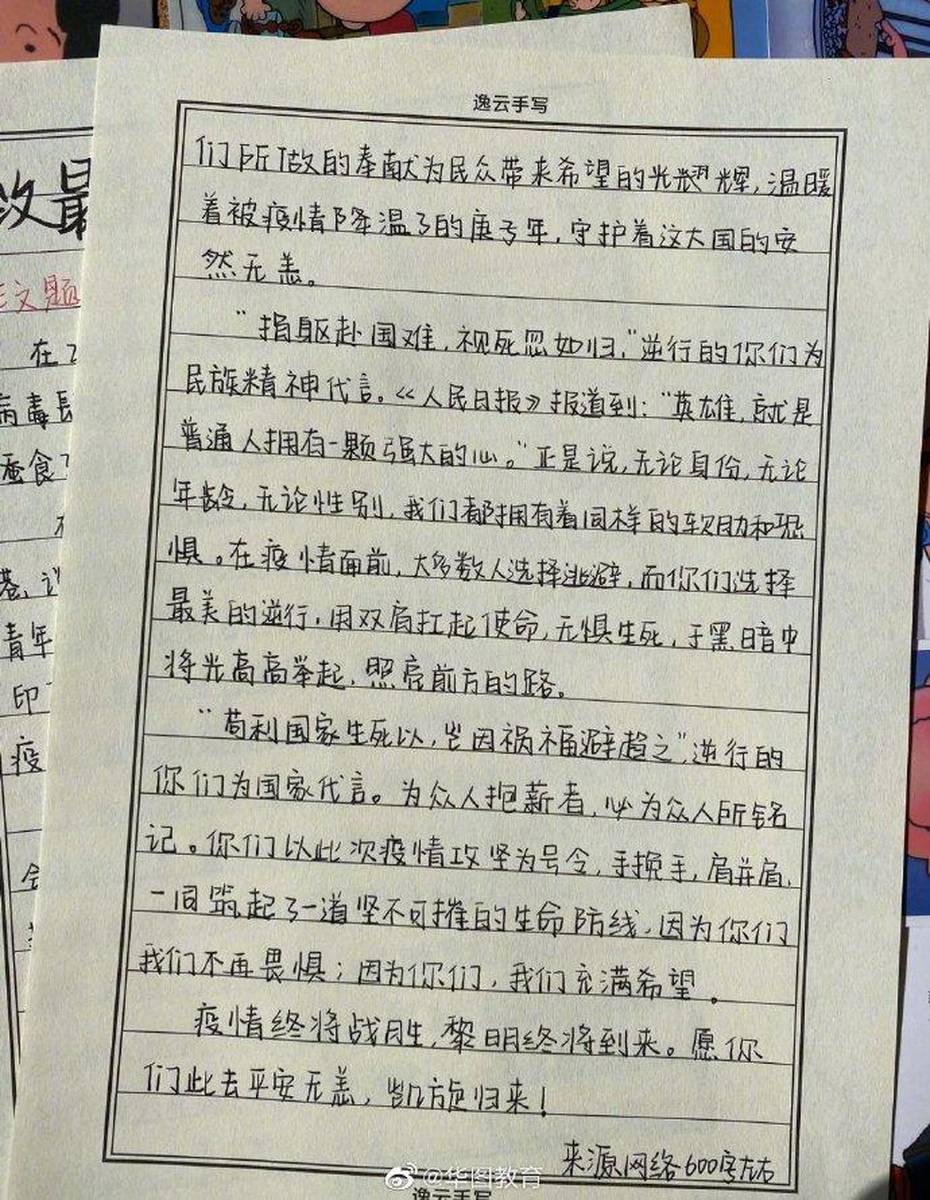 逸云手写
们所做的奉献为民众带来希望的光耀辉,温暖
着被疫情降温了的庚子年,守护着这大国的安
然无恙。
“捐躯赴国难,视死忽如归,”逆行的你们为
民族精神代言。《人民日报》报道到:“英雄,就是
普通人拥有一颗强大的心。”正是说,无论身份,无论
年龄,无论性别,我们都拥有着同样的软肋和恐
惧。在疫情面前,大多数人选择逃避,而你们选择
最美的逆行,用双肩扛起使命,无惧生死,于黑暗中
将光高高举起,照亮前方的路。
“苟利国家生死以,岂因祸福避趋之”,逆行的
你们为国家代言。为众人抱薪者,必为众人所铭
记。你们以此次疫情攻坚为号令,手挽手,肩并肩,
一同筑起了一道坚不可摧的生命防线,因为你们
我们不再畏惧;因为你们,我们充满希望。
疫情终将战胜,黎明终将到来。愿你
们此去平安无恙,凯旋归来!
来源网络600字左右
逸云手写
@华图教育
最
文题
在
病毒
蚕食
青年
印
疫